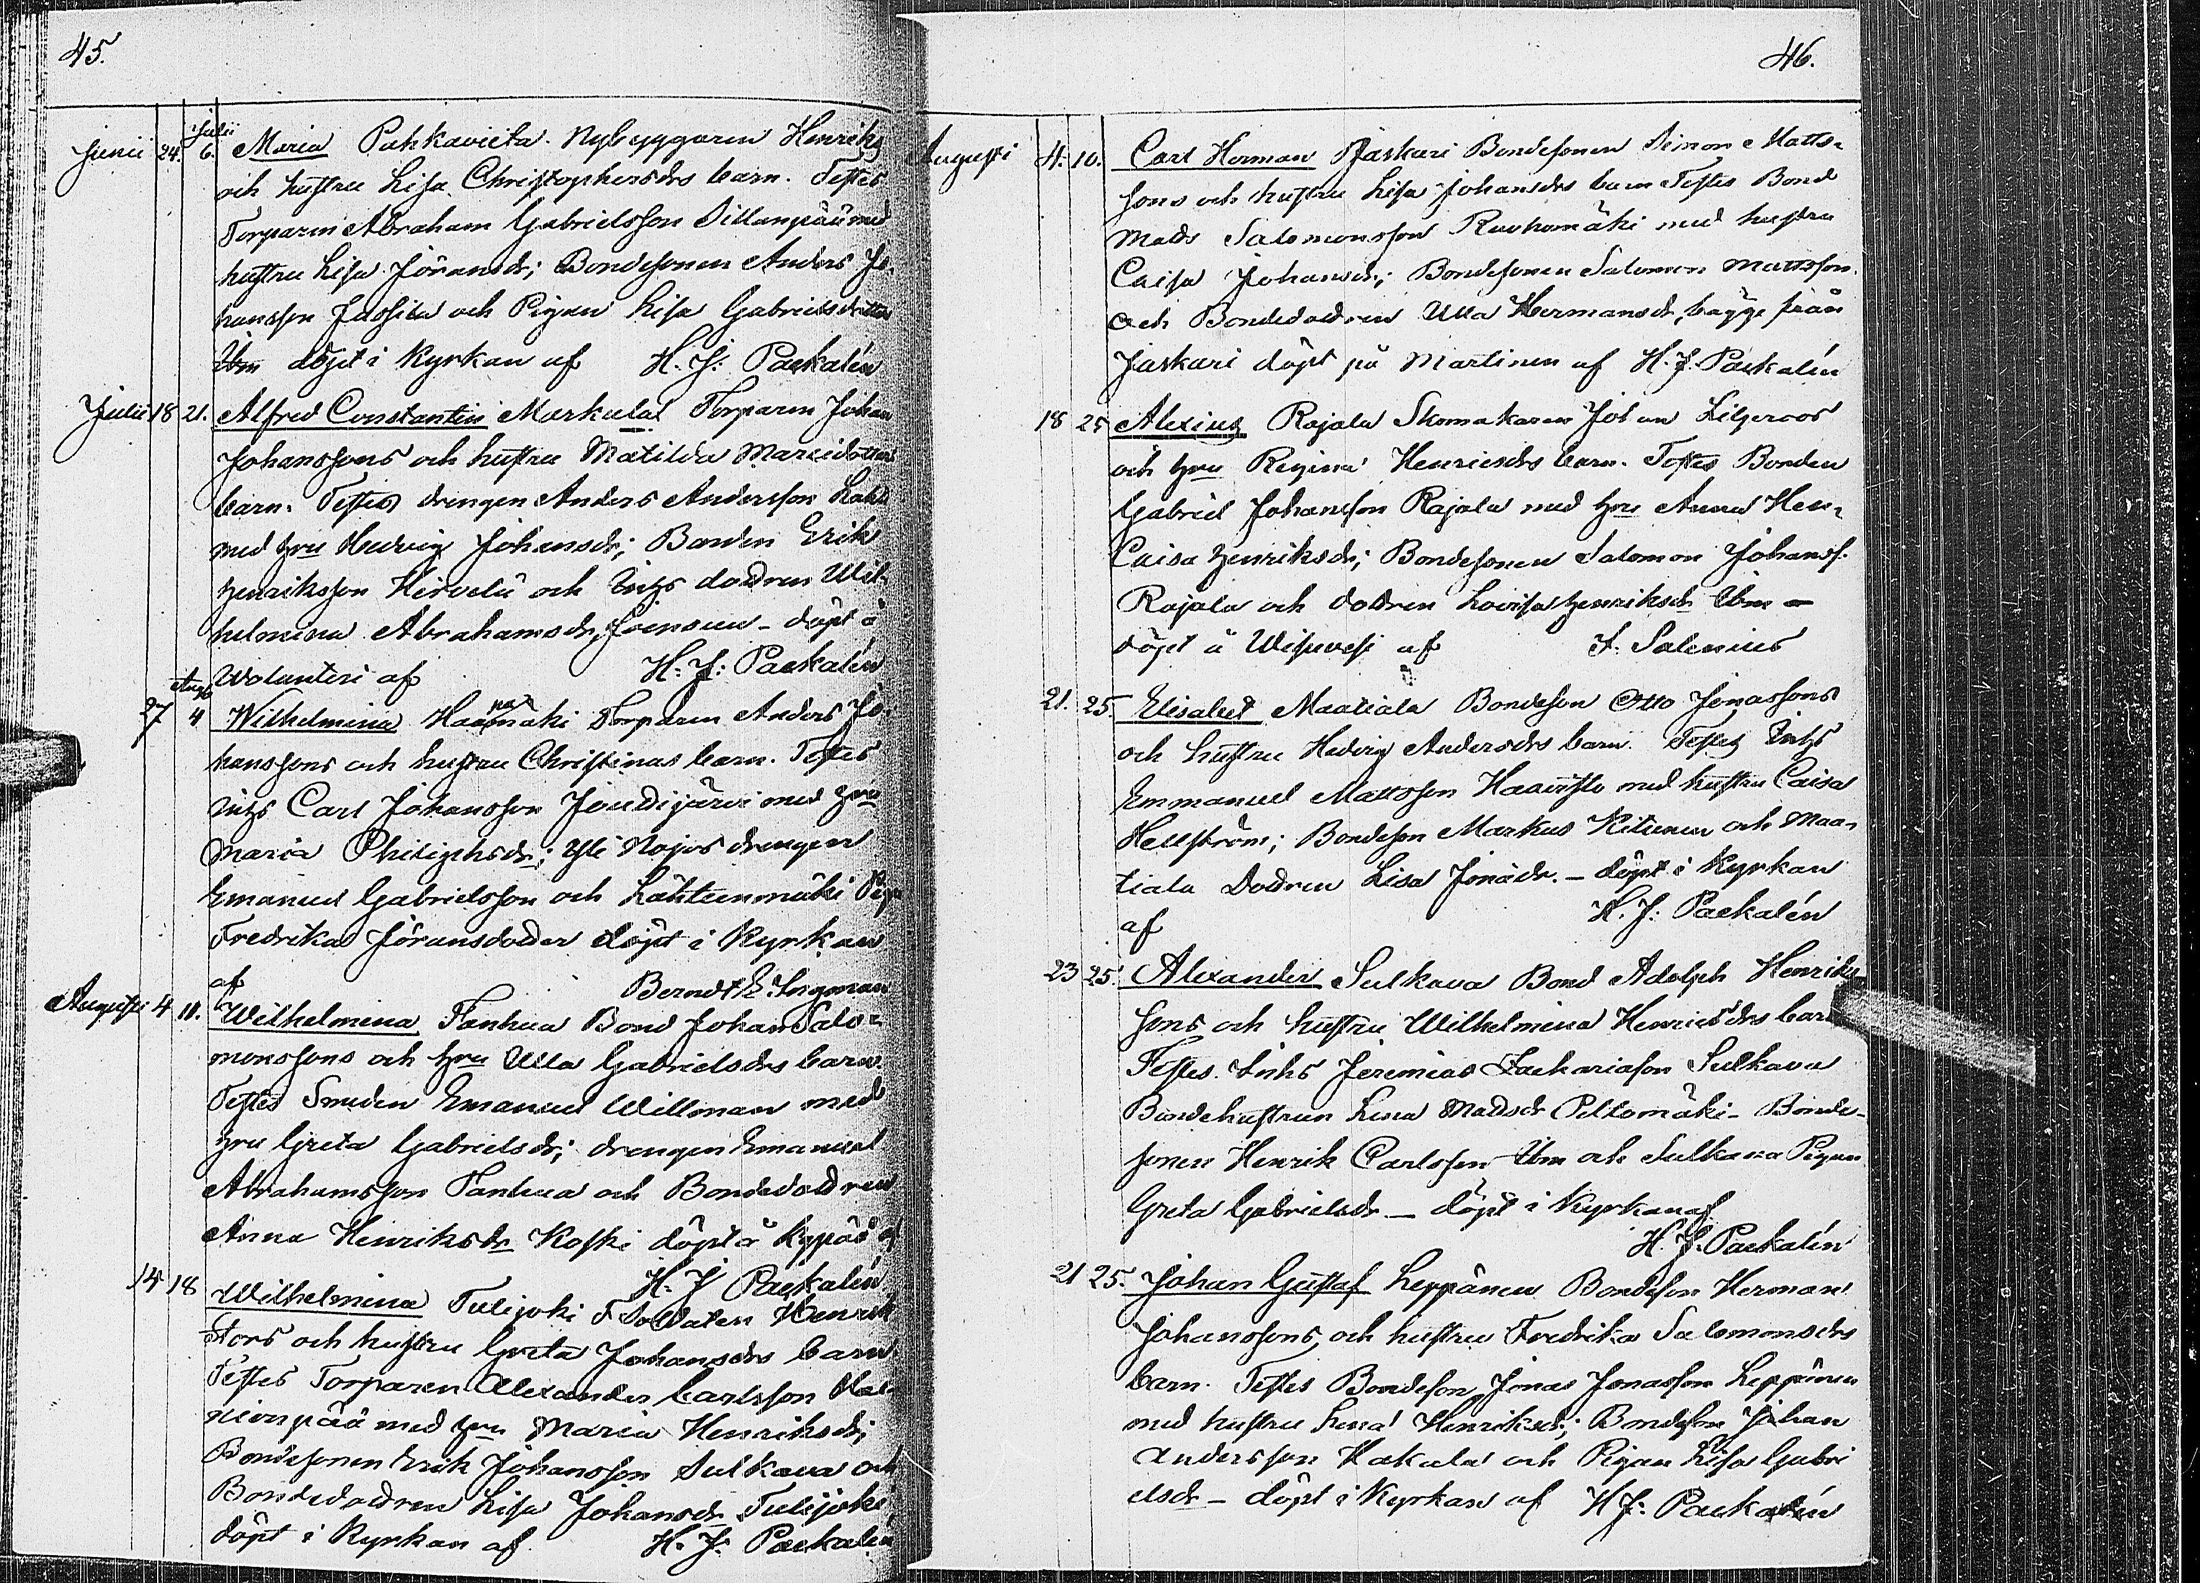 45.
Julii
Junii 24. 6. Maria Pakkavieta. Nybyggaren Henriks
och hustru Lisa Christophersdrs barn. Testes
Torparen Abraham Gabrielsson Sillanpää med
hustru Lisa Jöransdr; Bondesonen Anders Jo-
hansson Jussila och Pigan Lisa Gabrielsdotter
Ibm döpt i Kyrkan af H. J: Packalén
Julii 18 21. Alfred Constantin Markula Torparen Johan
Johanssons och hustru Matilda Marcidotters
barn. Testes drengen Anders Andersson
med hru Hedvig Johansdr; Bonden Erik
Henriksson Hirvelä och Inhs dottren Wil-
helmina Abrahamsdr, döpt å
Wolanteri af H. J: Packalén
Aug
27 4 Wilhelmina Haapamäki Torparen Anders Jo-
hanssons och hustru Christinas barn. Testes
Inhs Carl Johansson Joudijärvi med hru
Maria Philiphsdr; Yli Nojos drengen
Emanuel Gabrielsson och Lähteenmäki Piga
Fredrika Jöransdotter döpt i Kyrkan
af Berndt E. Ingman
Augusti 4 10. Wilhelmina Fanhua Bond Johan Salo-
monssons och hru Ulla Gabrielsdrs barn.
Testes Smeden Emanuel Willman med
hru Greta Gabrielsdr; drengen Emanuel
Abrahamsson Fanhua och Bondedottren
Anna Henriksdr Koski döpt å Kypäs af
H. J Packalén
14 18 Wilhelmina Tulijoki F Soldaten Henrik
Fors och hustru Greta Johansdrs barn.
Testes Torparen Alexander Carlsson
pää med hru Maria Henriksdr;
Bondesonen Erik Johansson Sulkava och
Bondedottren Lisa Johansdr Tulijoki
döpt i Kyrkan af H. J: Packalén
46.
Augusti 4. 10. Carl Herman Jaskari Bondesonen Simon Matts-
sons och hustru Lisa Johansdrs barn Testes Bond
Mats Salomonsson Ruohomäki med hustru
Caisa Johansdr; Bondesonen Salomon Mattsson
och Bondedottren Ulla Hermansdr, bägge från
Jaskari döpt på Martinen af H. J. Packalén
18 25 Alexius Rajala Skomakaren Johan Liljeroos
och hru Regina Henricsdrs barn. Testes Bonden
Gabriel Johansson Rajala med hru Anna Hen-
Caisa Henriksdr; Bondesonen Salomon Johanss.
Rajala och dottren Lovisa Henriksdr Ibm -
döpt å Wisuvesi af F. Salenius
21. 25. Elisabet Maatiala Bondeson Otto Jonassons
och hustru Hedvig Andersdrs barn. Testes Inhs
Emmanuel Mattsson Haavisto med hustru Caisa
Hellström; Bondeson Markus Kitunen och Maa-
tiala Dottren Lisa Jonædr. - döpt i Kyrkan
af H. J: Packalén
23 25. Alexander Sulkava Bond Adolph Henriks
sons och hustru Wilhelmina Henricsdrs barn
Testes. Inhs Jeremias Zachariason Sulkava
Bondehustrun Lena Mattsdr Peltomäki - Bonde-
sonen Henrik Carlsson Ibm och Sulkava Pigan
Greta Gabrielsdr - döpt i Kyrkan af
H. J. Packalén
21 25. Johan Gustaf Leppänen Bondeson Herman
Johanssons, och hustru Fredrika Salomonsdrs
barn. Testes Bondeson Jonas Jonasson Leppänen
med hustru Lena Henriksdr; Bondeson Johan
Andersson Kakala och Pigan Lisa Gabri
elsdr - döpt i Kyrkan af H J: Packalén